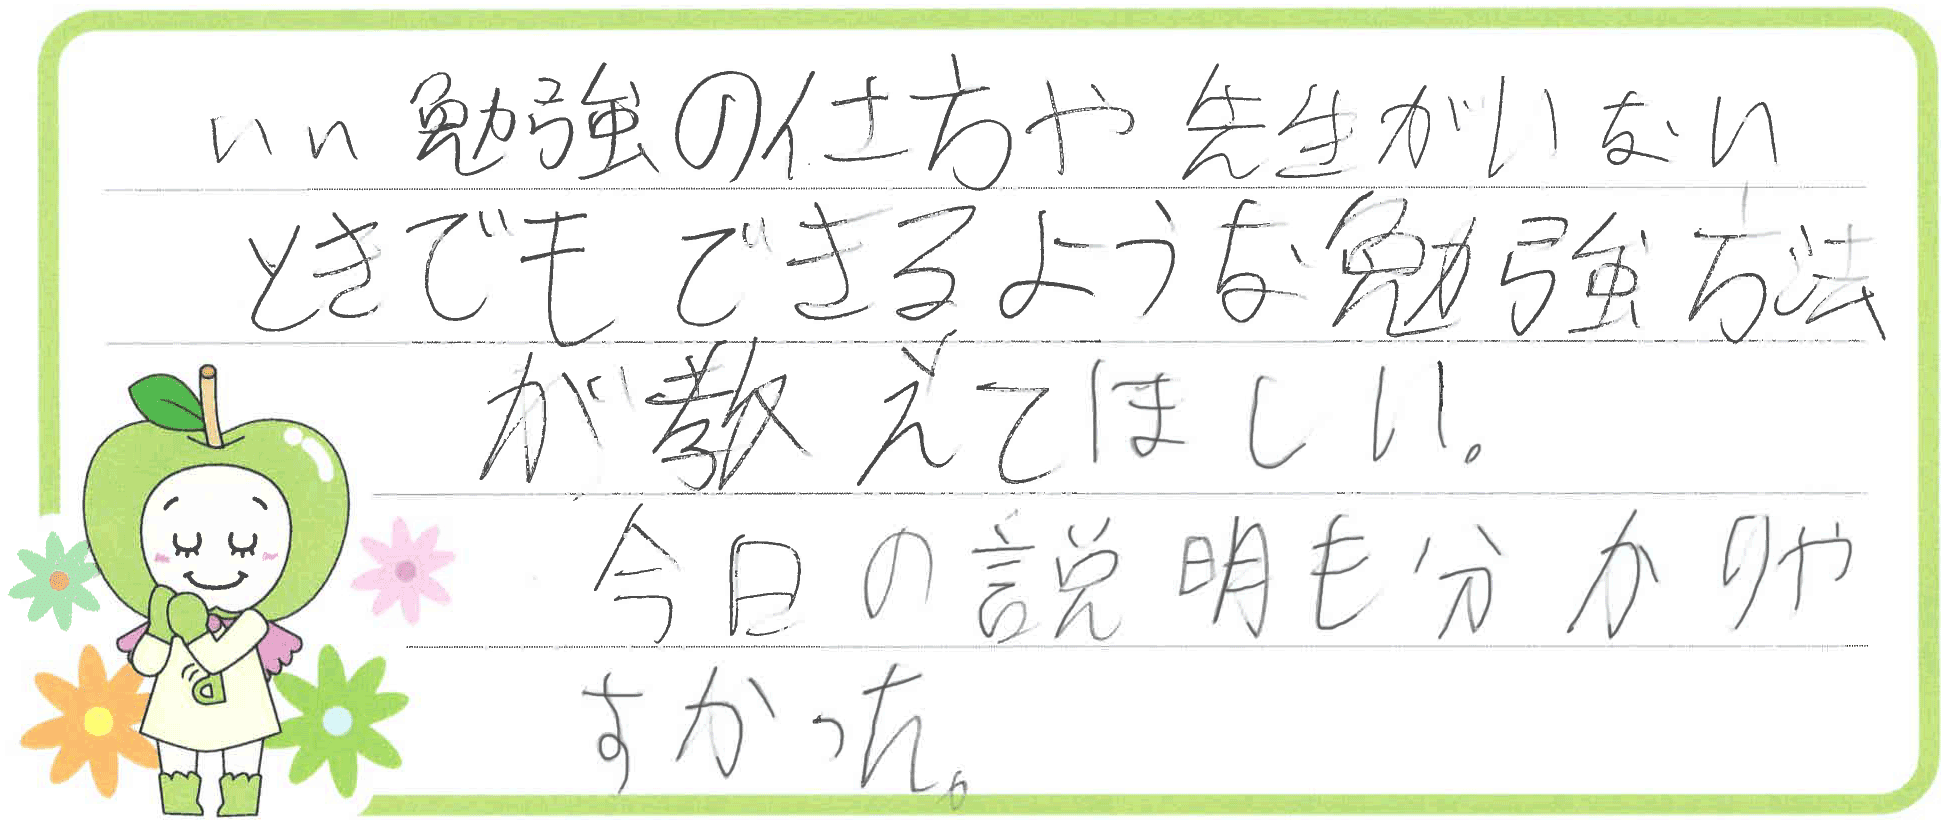 いい勉強の仕方や先生がいない
ときでもできるような勉強方法
が教えてほしい。
今日の説明も分かりや
すかった。